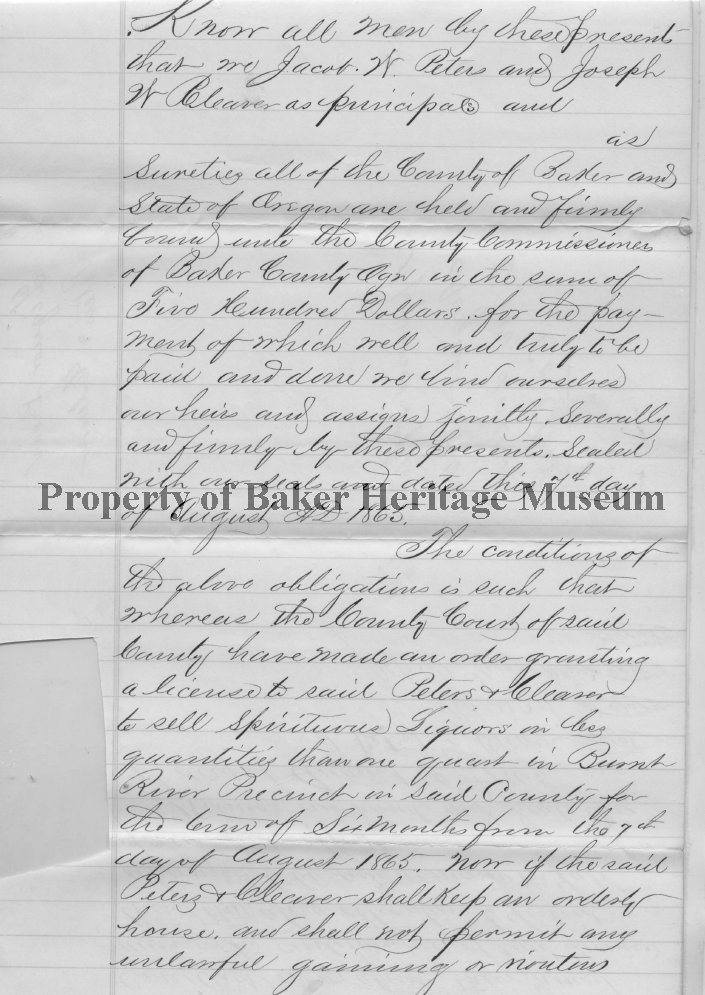 Know all men by these presents
that we Jacob. W. Peters and Joseph
W Cleaver as principals and
as
Sureties all of the County of Baker and
State of Oregon are held and firmly
bound unto the County Commissioners
of Baker County Ogn in the sum of
Five Hundred Dollars. for the pay-
ment of which well and truly to be
paid and done we bind ourselves
our heirs and assigns jointly. Severally
and firmly by these presents. Sealed
with our seals and dated this 7th day
Property of Baker Heritage Museum
of August AD 1865.
The conditions of
the above obligations is such that
whereas the County Court of said
County have made an order granting
a license to said Peters & Cleaver
to sell Spirituous Liquors in less
quantities than one quart in Burnt
River Precinct in said County for
the term of Six months from the 7th
day of August 1865. now if the said
Peters & Cleaver shall keep an orderly
house. and shall not permit any
unlawful gaiming or riotous